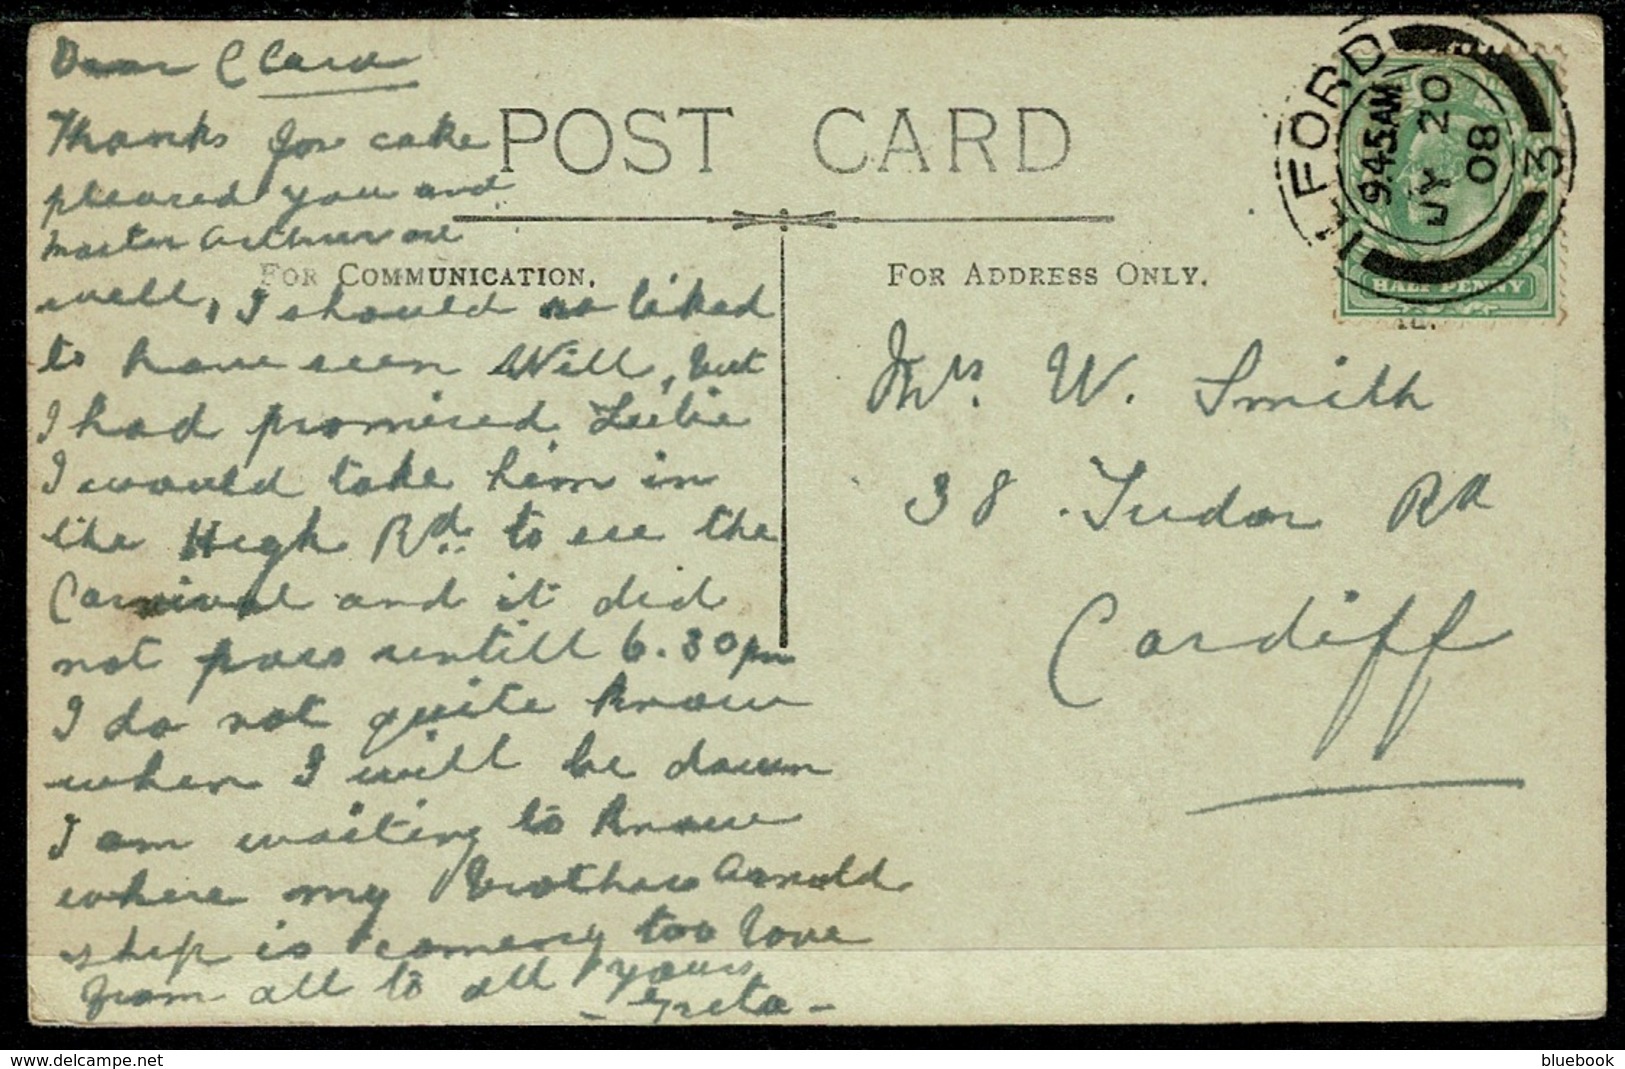 Dear Clara
Thanks for cake
pleased you and
Master Arthur are
well, I should so liked
to have seen Will, but
I had promised Leslie
I would take him in
the High Rd. to see the
Carnival and it did
not pass untill 6.30 pm
I do not quite know
when I will be down
I am waiting to know
where my Brothers Arnold
ship is comeing too love
from all to all yours
- Greta -
POST CARD
FOR COMMUNICATION.
FOR ADDRESS ONLY.
ILFORD
9.45AM
JY 20
08
3
HALF PENNY
Mrs. W. Smith
38. Tudor Rd
Cardiff
www.delcampe.net
bluebook